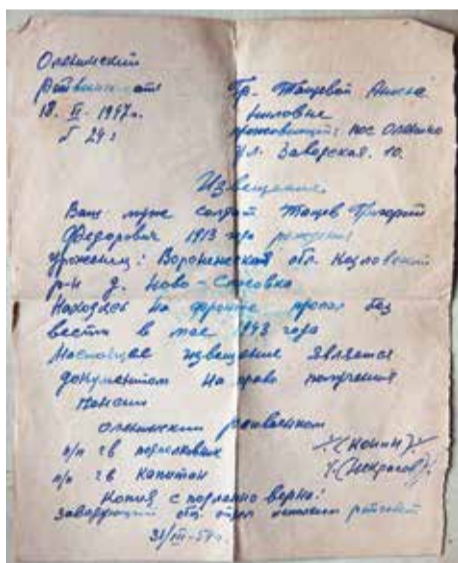 Оленинский
18. II- 1947г.
№ 24:
Гр. Тащевой Анне
Ниловне
проживающей: пос Оленино
ул. Заводская. 10.
Извещение.
Ваш муж солдат Тащев Григорий
Федорович 1913 года рождения
уроженец: Воронежская обл. Козловский
р-н д. Ново-
Находясь на фронте пропал без
вести в мае 1943 года
Настоящее извещение является
документом на право получения
пенсии
Оленинский райвоенком
п/п г в подполковник (Конин)
п/п г в капитан (Некрасов)
Копия с подлинно верна:
Заведующий общ отдел
31/III-57г.